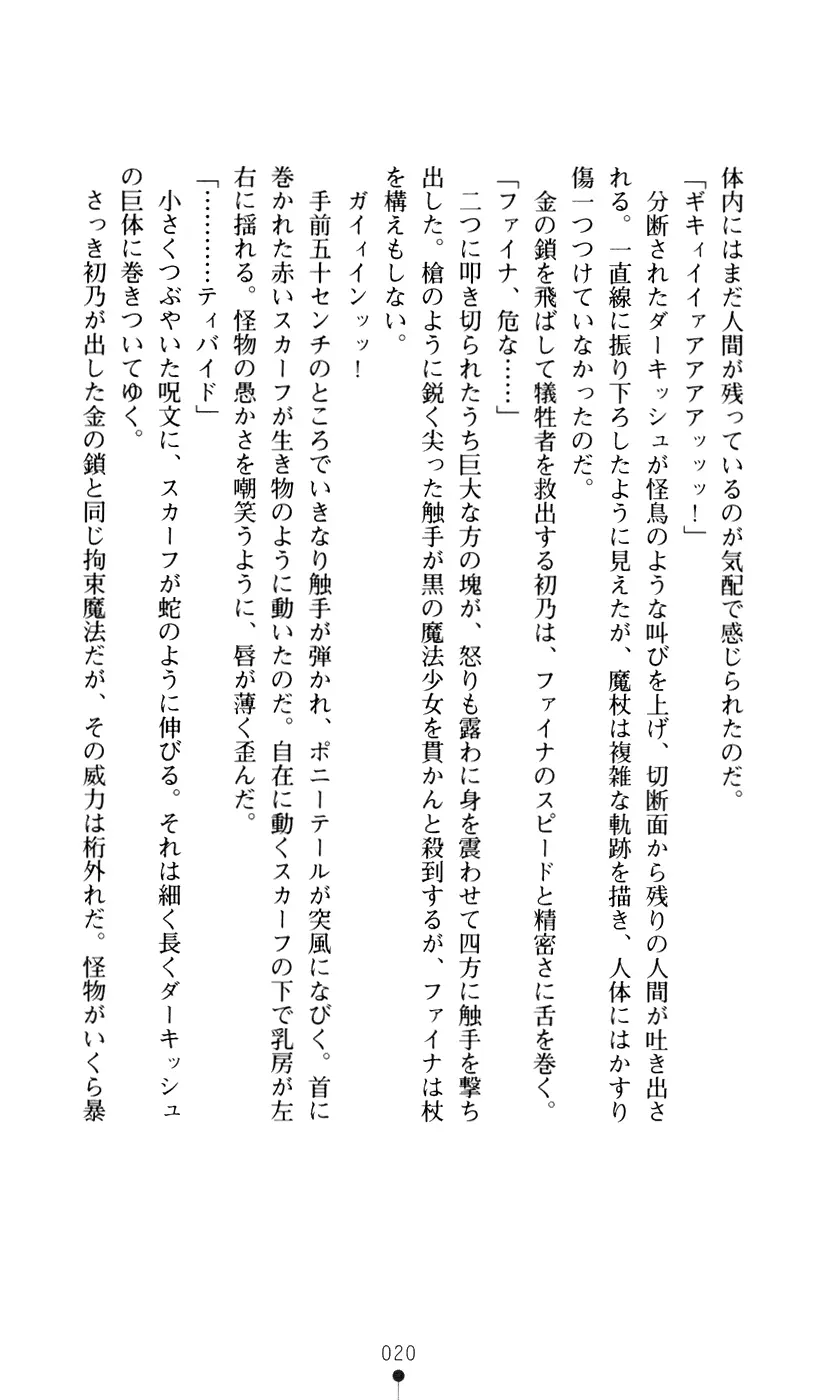 体内にはまだ人間が残っているのが気配で感じられたのだ。
「ギキィイイァアアアアッッッ！」
分断されたダーキッシュが怪鳥のような叫びを上げ、切断面から残りの人間が吐き出さ
れる。一直線に振り下ろしたように見えたが、魔杖は複雑な軌跡を描き、人体にはかすり
傷一つつけていなかったのだ。
金の鎖を飛ばして犠牲者を救出する初乃は、ファイナのスピードと精密さに舌を巻く。
「ファイナ、危な……」
二つに叩き切られたうち巨大な方の塊が、怒りも露わに身を震わせて四方に触手を撃ち
出した。槍のように鋭く尖った触手が黒の魔法少女を貫かんと殺到するが、ファイナは杖
を構えもしない。
ガイィインッッ！
手前五十センチのところでいきなり触手が弾かれ、ポニーテールが突風になびく。首に
巻かれた赤いスカーフが生き物のように動いたのだ。自在に動くスカーフの下で乳房が左
右に揺れる。怪物の愚かさを嘲笑うように、唇が薄く歪んだ。
「…………ティバイド」
小さくつぶやいた呪文に、スカーフが蛇のように伸びる。それは細く長くダーキッシュ
の巨体に巻きついてゆく。
さっき初乃が出した金の鎖と同じ拘束魔法だが、その威力は桁外れだ。怪物がいくら暴
020